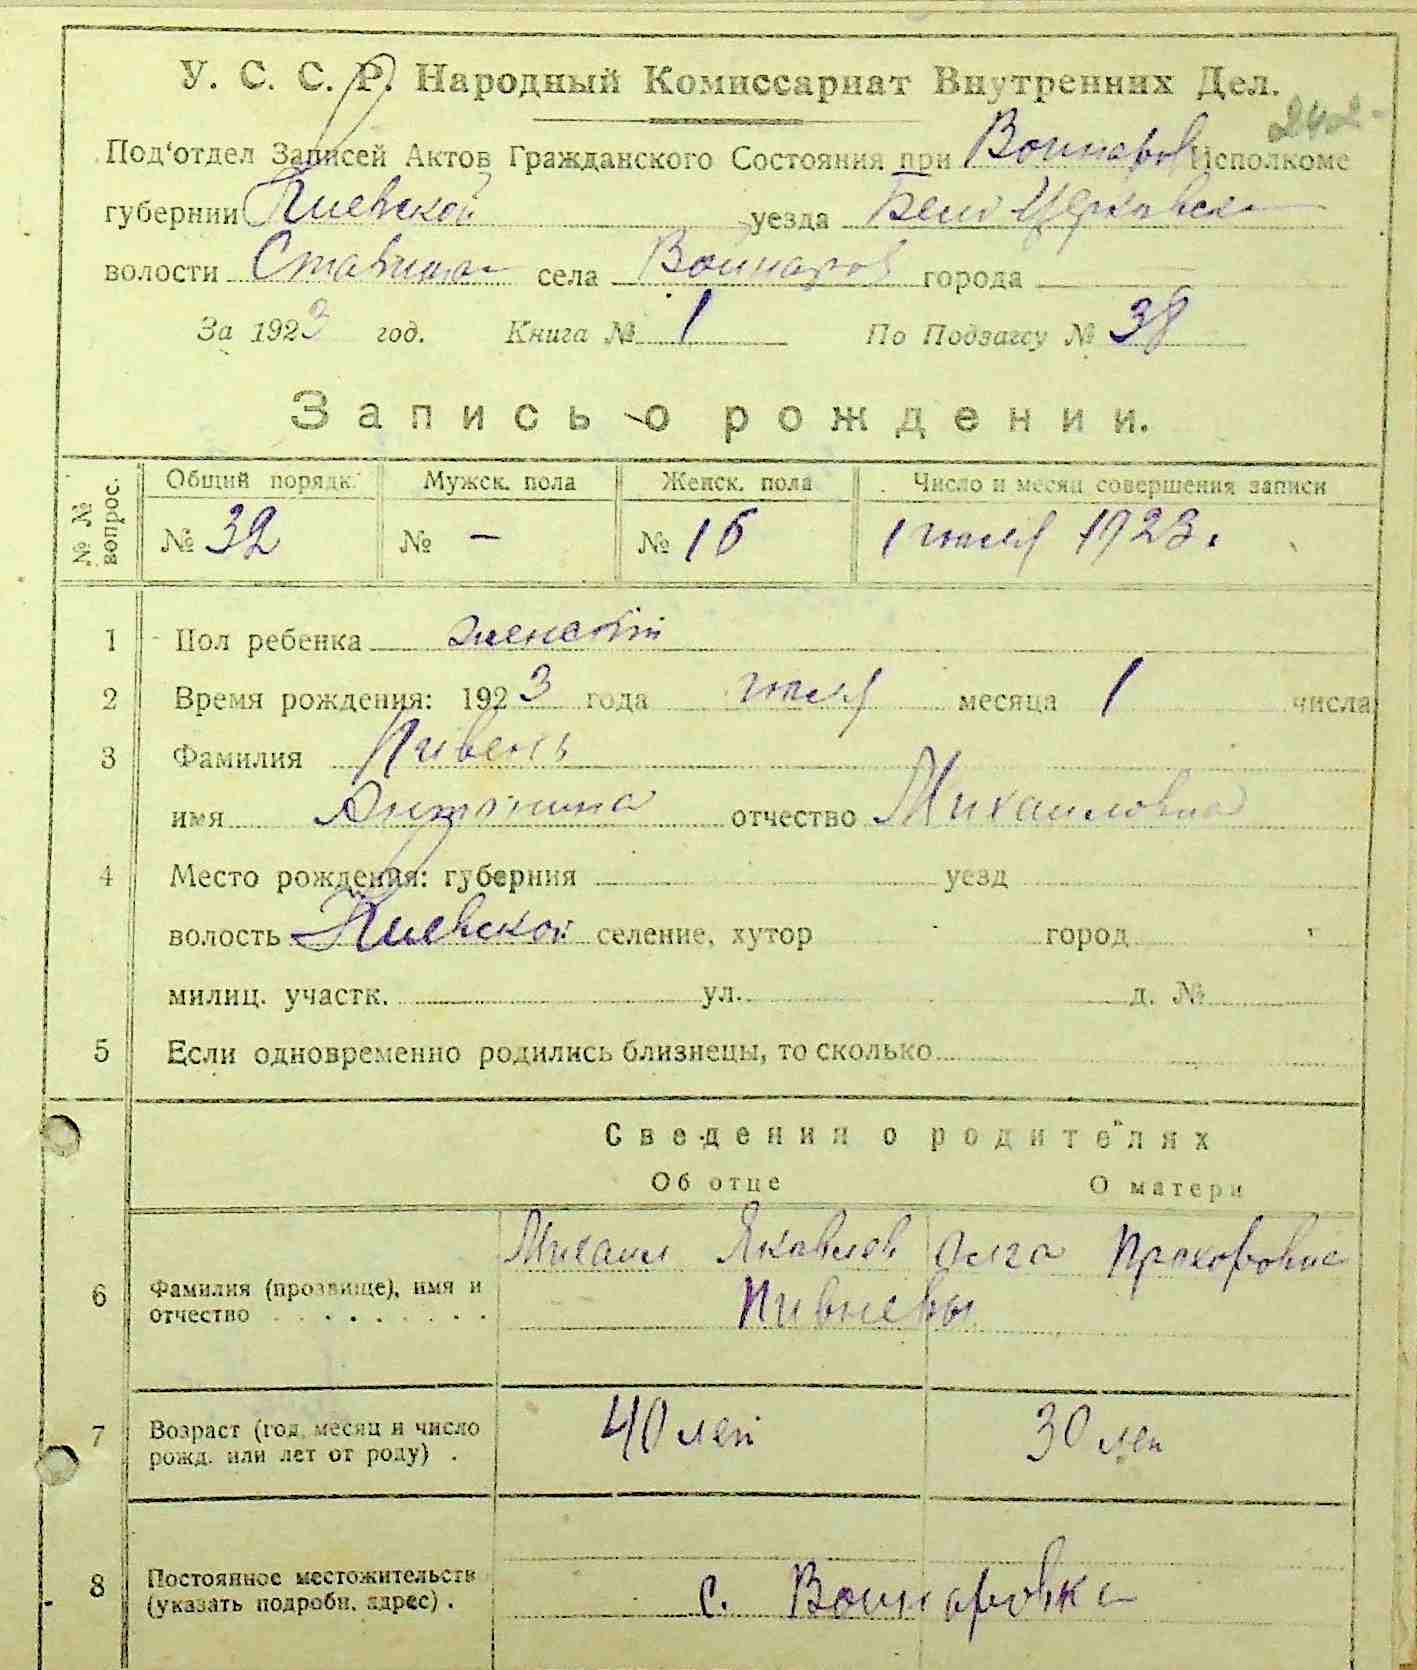 У. С. С. Р. Народный Комиссариат Внутренних Дел.
242
Под'отдел Записей Актов Гражданского Состояния при Войнаров Исполкоме
губернии Киевской уезда Бело Церковск
волости Ставищан села Войнаров города
За 1923 год. Книга № 1 По Подзагсу № 38
Запись о рождении.
№ № вопрос. Общий порядк. Мужск. пола Женск. пола Число и месяц совершения записи
№ 32 № – № 16 1 июля 1923.
1 Пол ребенка женский
2 Время рождения: 1923 года июля месяца 1 числа
3 Фамилия Пивень
имя Антонина отчество Михайловна
4 Место рождения: губерния уезд
волость Киевской селение, хутор город
милиц. участк. ул. д. №
5 Если одновременно родились близнецы, то сколько
Сведения о родителях
Об отце О матери
Михаил Яковлев Олга Прохоровна
Пивневы
6 Фамилия (прозвище), имя и
отчество . . . . . . . . .
7 Возраст (год, месяц и число
рожд. или лет от роду) . 40 лет 30 лет
8 Постоянное местожительств
(указать подробн. адрес) . с. Войнаровка